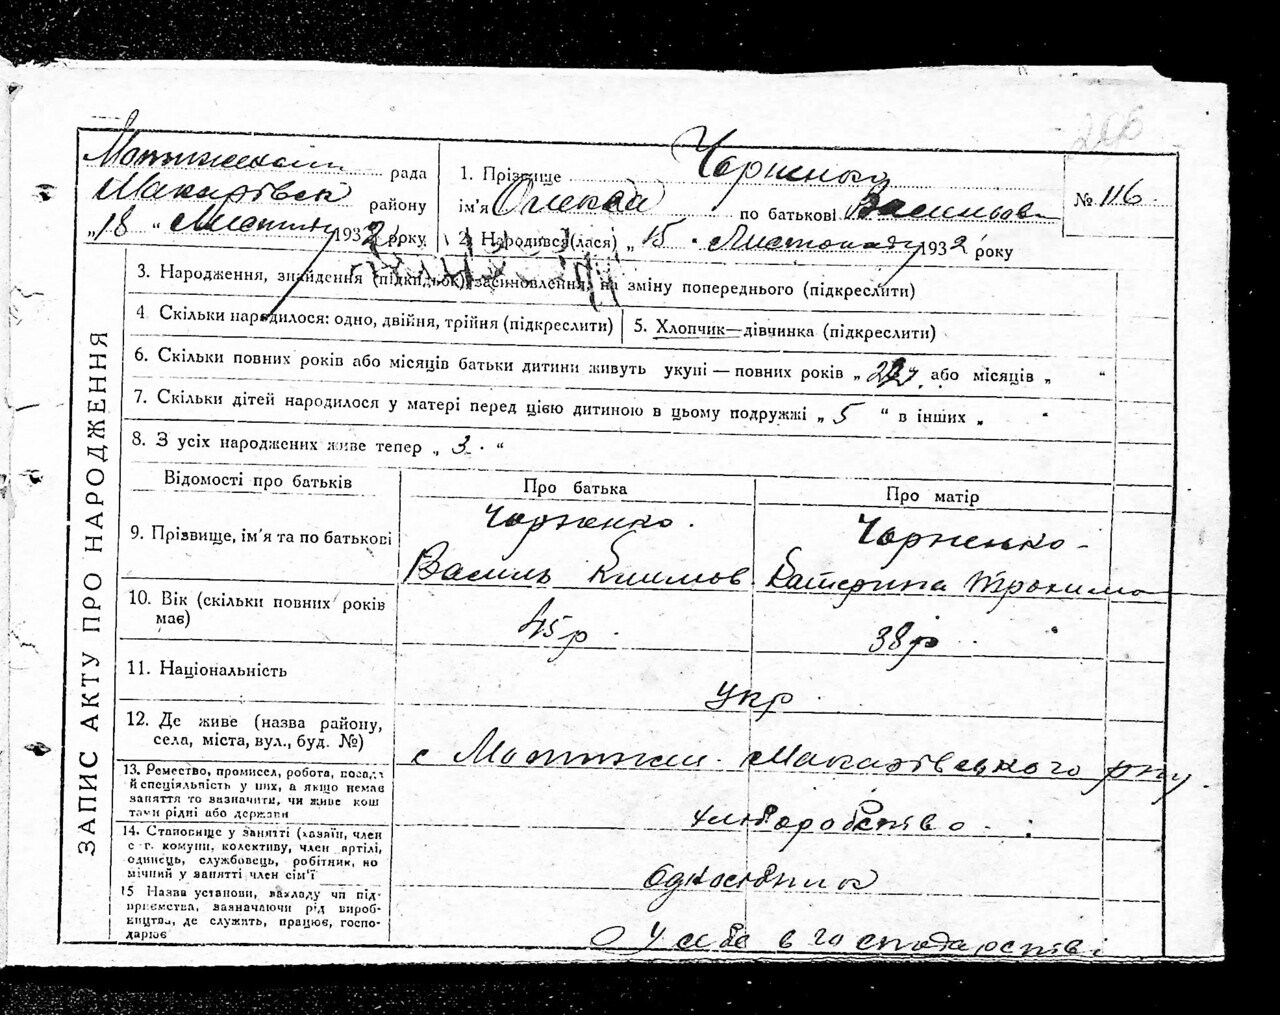 206
Мотижинськ рада
Макарівськ району
„18“ Листопаду 1932 року
1. Прізвище Чорненко
ім'я Олекса по батькові Васильов
2. Народився(лася) „15“ Листопаду 1932 року
№ 116.
ЗАПИС АКТУ ПРО НАРОДЖЕННЯ
3. Народження, знайдення (підкидьок), засиновлення, на зміну попереднього (підкреслити)
4 Скільки народилося: одно, двійня, трійня (підкреслити)
5. Хлопчик—дівчинка (підкреслити)
6. Скільки повних років або місяців батьки дитини живуть укупі — повних років „ або місяців „ “
7. Скільки дітей народилося у матері перед цією дитиною в цьому подружжі „ 5 “ в інших „ “
8. З усіх народжених живе тепер „ 3 “
Відомості про батьків
Про батька
Про матір
9. Прізвище, ім'я та по батькові
Чорненко.
Василь Климов
Чорненко
Катерина Трохимо
10. Вік (скільки повних років
має)
45 р
38 р
11. Національність
Укр
12. Де живе (назва району,
села, міста, вул., буд. №)
с Мотижин Макарівського р-ну
13. Ремество, промисел, робота, посада
й спеціяльність у них, а якщо немає
заняття то зазначити, чи живе кош
тами рідні або держави
хліборобство
14. Становище у занятті (хазяїн, член
с-г. комуни, колективу, член артілі,
одинець, службовець, робітник, по
мічний у занятті член сім'ї
одноосібник
15 Назва установи, закладу чи під-
приємства, зазначаючи рід вироб-
ництва, де служить, працює, госпо-
дарює
У себе в господарстві